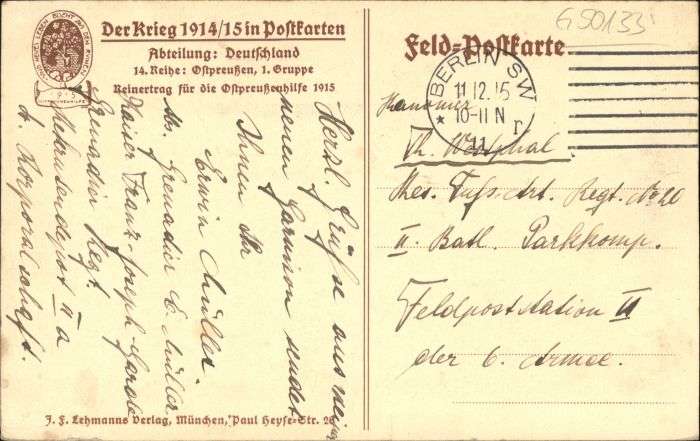 Der Krieg 1914/15 in Postkarten
Abteilung: Deutschland
14. Reihe: Ostpreußen, 1. Gruppe
Reinertrag für die Ostpreußenhilfe 1915
NEUES LEBEN BLÜHT AUS DEN RUINEN
1915
Herzl. Grüße aus meiner
neuen Garnison sendet
Ihnen Ihr
Erwin Müller
Abs. Grenadier E. Müller
Kaiser Franz-Joseph-Garde
Grenadier Regt.
Rekrutendepot II a
4. Korporalschaft.
J. F. Lehmanns Verlag, München, Paul Heyse-Str. 26
G50133
Feld-Postkarte
BERLIN SW
11.12.15
* 10-11 N
11 r
Kanonier
Th. Westphal
Res. Fußs-Art. Regt. No 20
II. Batl. Parkkomp.
Feldpoststation II
der 6. Armee.